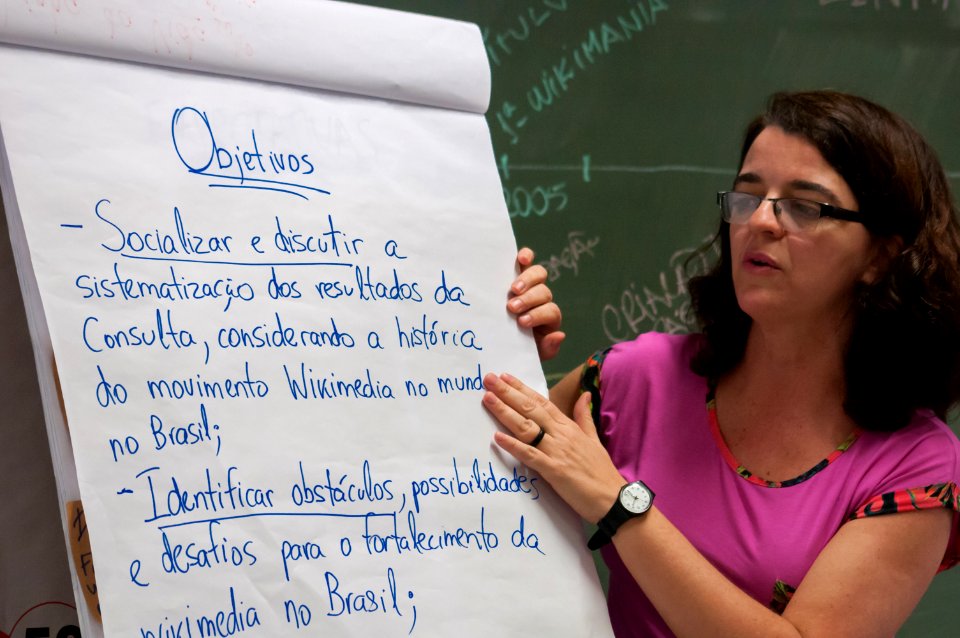 Objetivos
- Socializar e discutir a
sistematização dos resultados da
Consulta, considerando a história
do movimento Wikimedia no mund
no Brasil;
- Identificar obstáculos, possibilidades
e desafios para o fortalecimento da
Wikimedia no Brasil;
1ª WIKIMANIA
2005